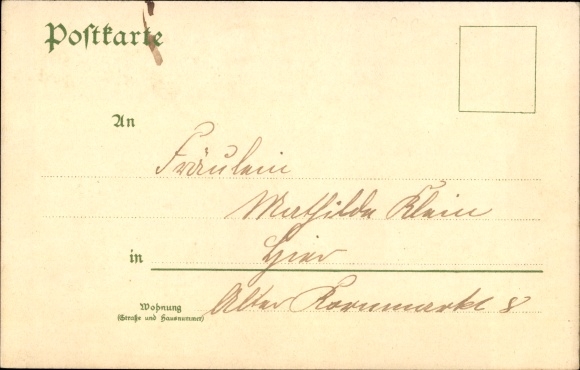 Postkarte
An
Fräulein
Mathilde Klein
in Hier
Wohnung Alter Kornmarkt 8
(Straße und Hausnummer)